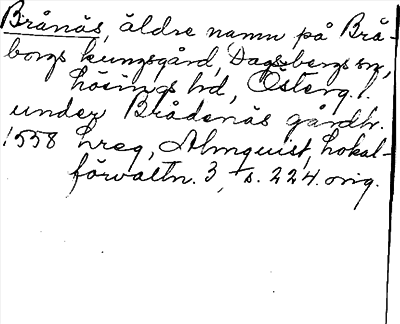 Brånäs, äldre namn på Brå-
borgs kungsgård, Dagsbergs sn,
Lösings hd, Österg. l.
under Brådenäs gårdh.
1558 hreg, Almquist, Lokal-
förvaltn. 3, s. 224. orig.